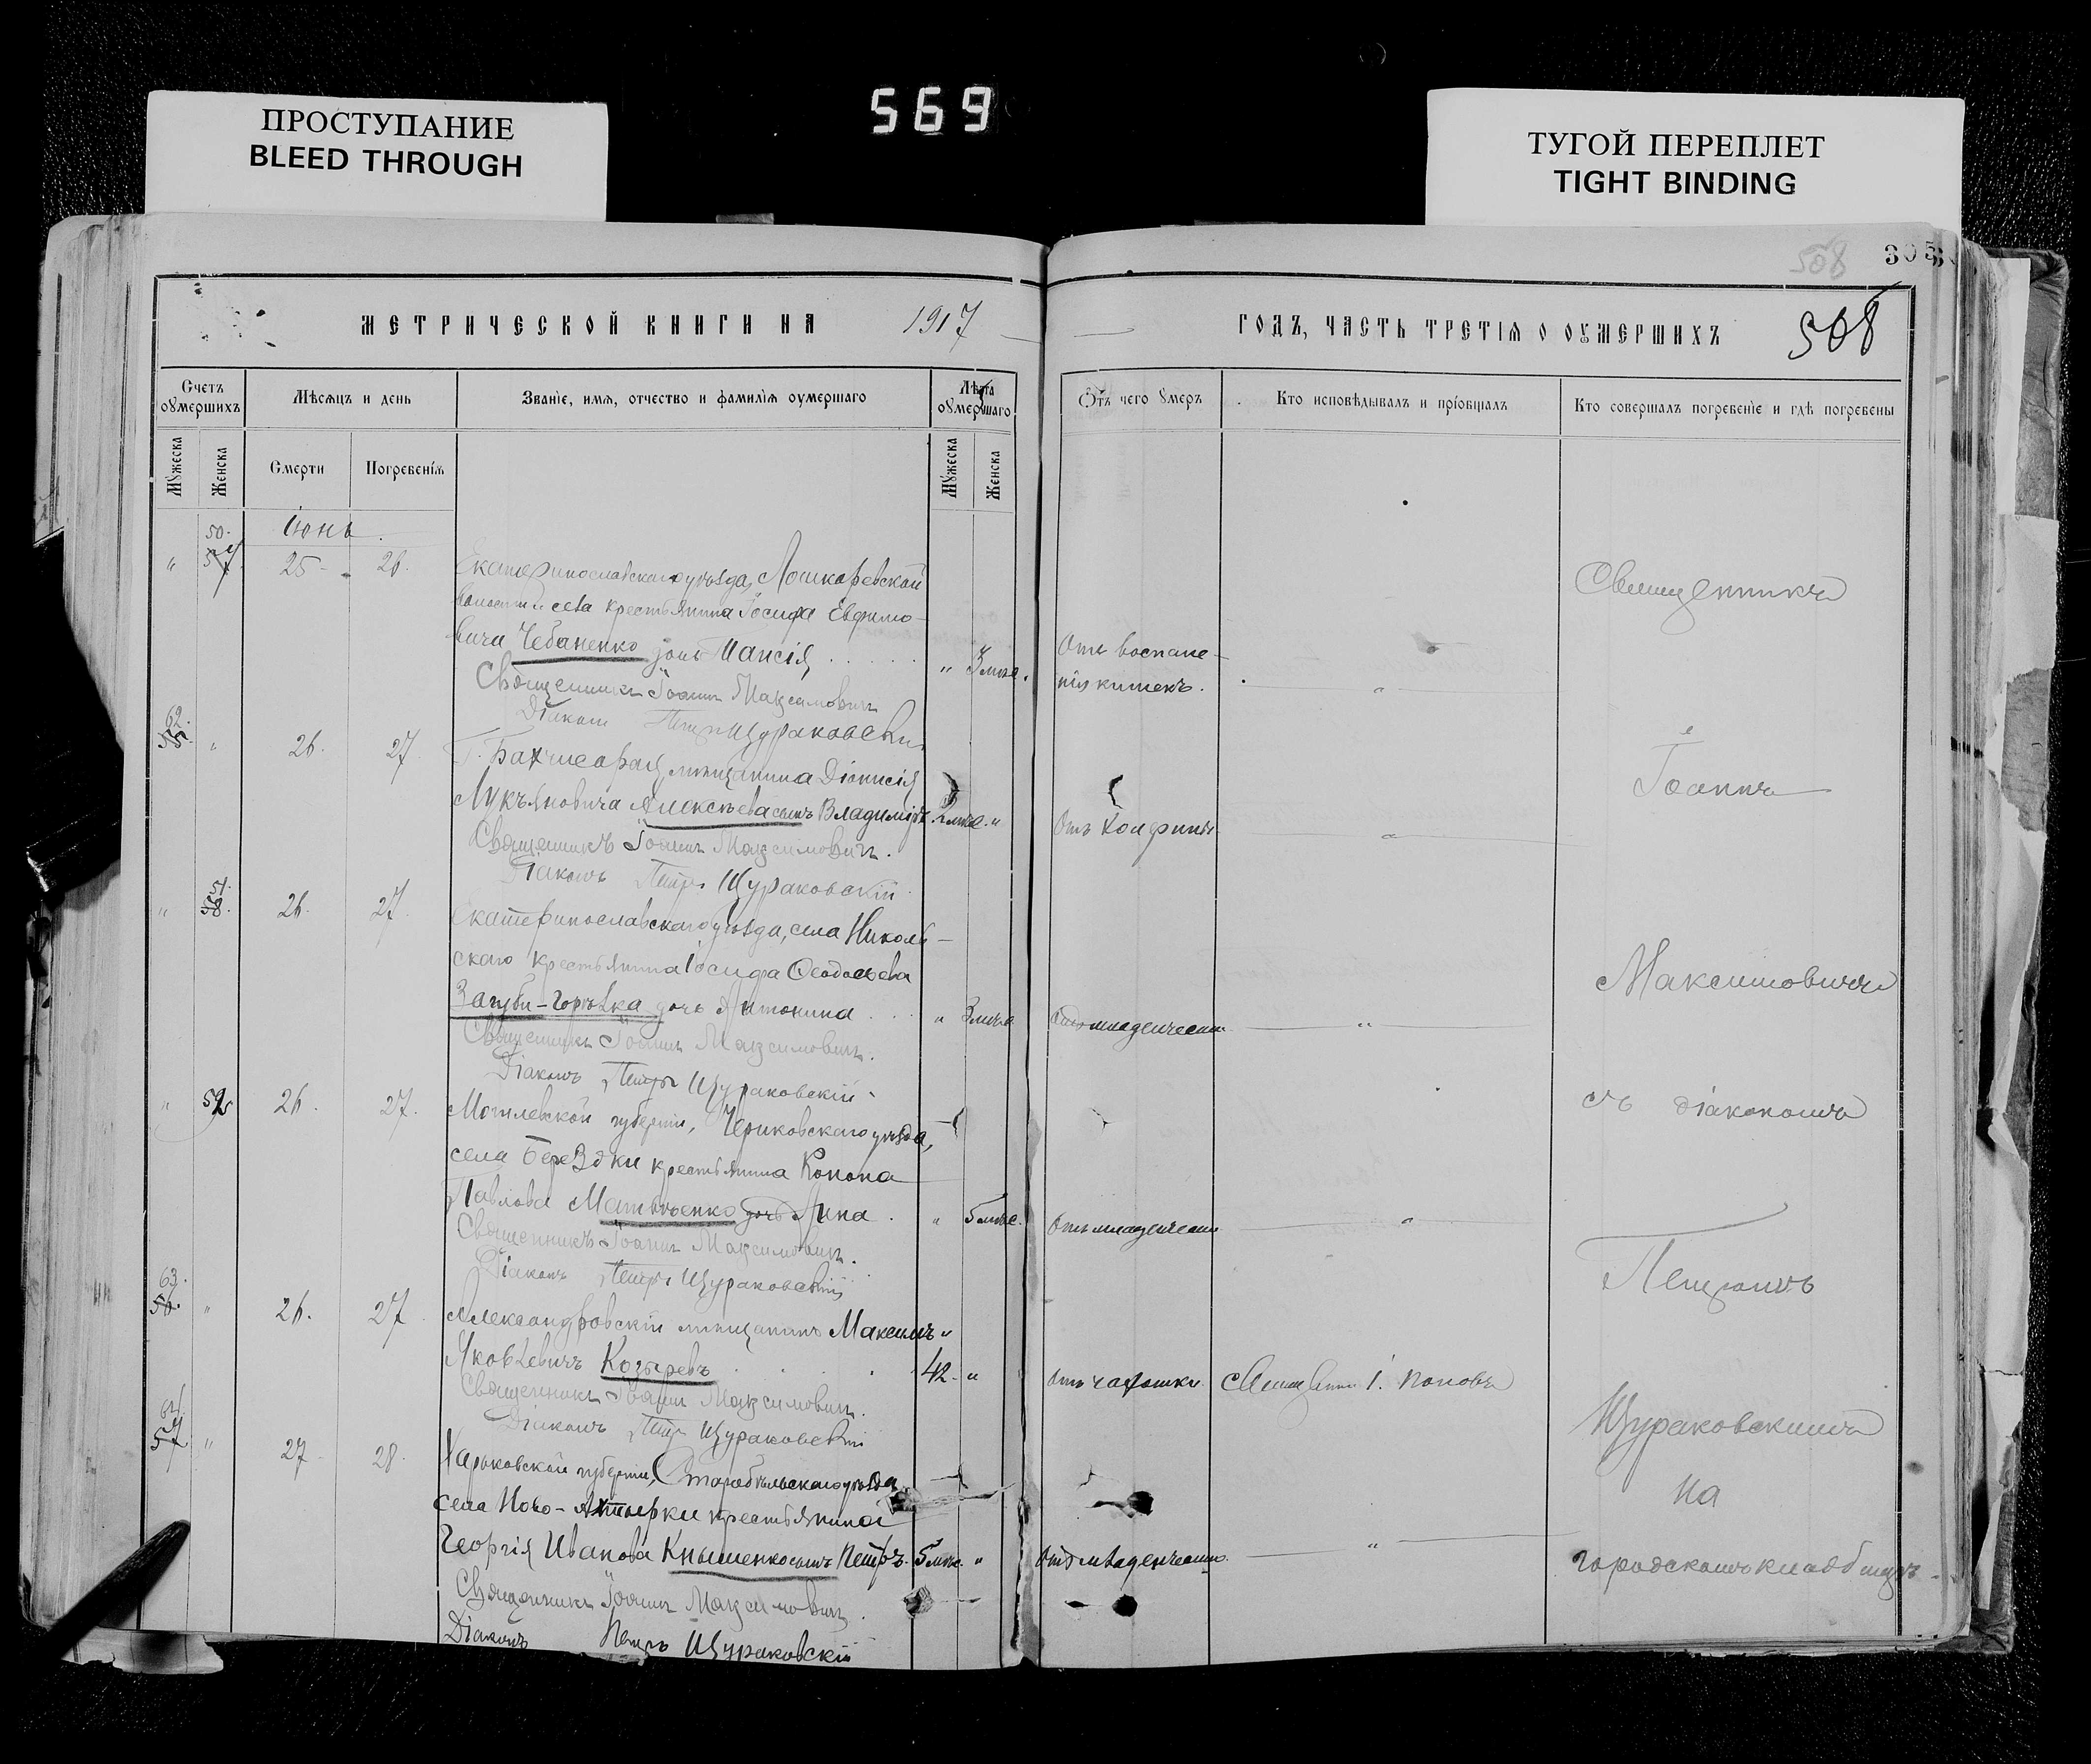 ПРОСТУПАНИЕ
BLEED THROUGH
569
ТУГОЙ ПЕРЕПЛЕТ
TIGHT BINDING
508
305
МЕТРИЧЕСКОЙ КНИГИ НА 1917
ГОДЪ, ЧАСТЬ ТРЕТІЯ О ОУМЕРШИХЪ
508
Счетъ оумершихъ
Мѣсяцъ и день
Званіе, имя, отчество и фамилія оумершаго
Лѣта оумершаго
Отъ чего Умеръ
Кто исповѣдывалъ и пріобщалъ
Кто совершалъ погребеніе и гдѣ погребены
Мужеска
Женска
Смерти
Погребенія
Мужеска
Женска
50.
Іюнь
" 57. 25 26. Екатеринославскаго уѣзда, Лошкаревской
волости и села крестьянина Іосифа Евфимо-
вича Чебаненко дочь Таисія " 3 мѣс. Отъ воспале-
нія кишекъ. "
Священникъ Іоаннъ Максимовичъ
Діаконъ Петръ Щураковскій
Священникъ
62.
55. " 26. 27. Г. Бахчисарая мѣщанина Діонисія
Лукъяновича Алексѣева сынъ Владиміръ 2 мѣс. "
Священникъ Іоаннъ Максимовичъ.
Діаконъ Петръ Щураковскій.
Іоаннъ
51.
" 58. 26. 27. Екатеринославскаго уѣзда, села Николь-
скаго крестьянина Іосифа Ѳеодосьева
Загуби-Горѣлка дочь Антонина " 3 мѣс. Отъ младенческой "
Священникъ Іоаннъ Максимовичъ.
Діаконъ Петръ Щураковскій.
Максимовичъ
" 52 26. 27. Могилевской губерніи, Чериковскаго уѣзда,
села Березки крестьянина Конона
Павлова Матвѣенко дочь Анна " 5 мѣс. Отъ младенческой "
Священникъ Іоаннъ Максимовичъ.
Діаконъ Петръ Щураковскій
съ діакономъ
63.
56. " 26. 27. Александровскій мѣщанинъ Максимъ
Яковлевичъ Козыревъ 42. " Отъ чахотки Священникъ І. Поповъ
Священникъ Іоаннъ Максимовичъ.
Діаконъ Петръ Щураковскій
Петромъ
64.
57 " 27 28. Харьковской губерніи, Старобѣльскаго уѣзда
села Ново-Ахтырки крестьянина
Георгія Иванова Кнышенко сынъ Петръ. 5 мѣс. " Отъ младенческой. "
Священникъ Іоаннъ Максимовичъ.
Діаконъ Петръ Щураковскій
Щураковскимъ
на
городскомъ кладбищѣ.